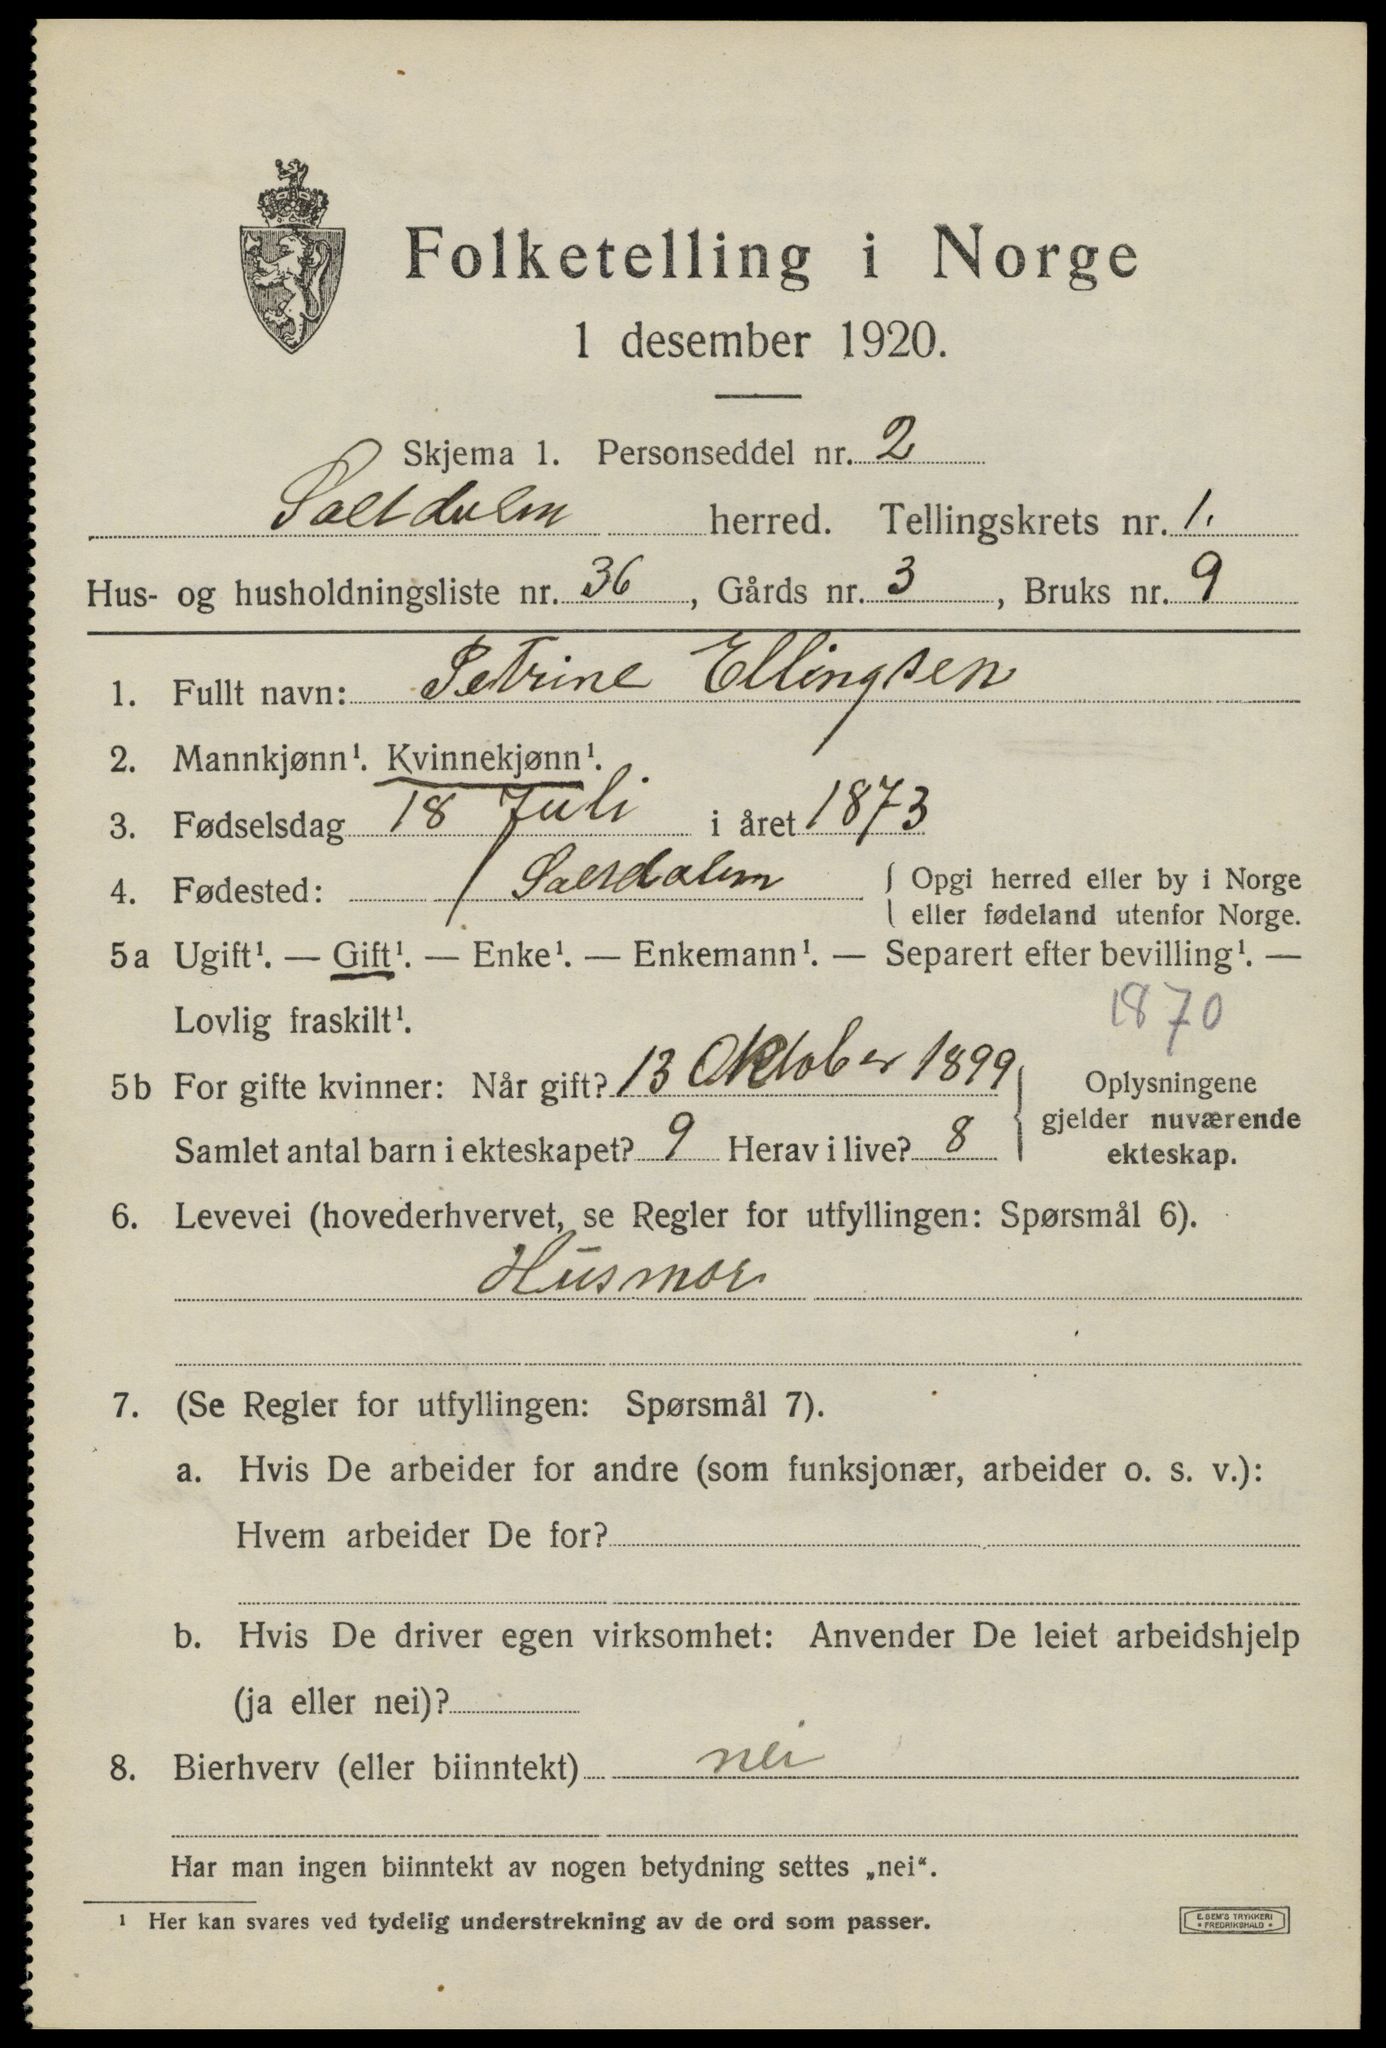 Folketelling i Norge
1 desember 1920.
Skjema 1. Personseddel nr. 2
Saltdalen herred. Tellingskrets nr. 1.
Hus- og husholdningsliste nr. 36, Gårds nr. 3, Bruks nr. 9
1. Fullt navn: Petrine Ellingsen
2. Mannkjønn¹. Kvinnekjønn¹.
3. Fødselsdag 18 Juli i året 1873
4. Fødested: Saltdalen { Opgi herred eller by i Norge
eller fødeland utenfor Norge.
5a Ugift¹. — Gift¹. — Enke¹. — Enkemann¹. — Separert efter bevilling¹. —
Lovlig fraskilt¹.
1870
5b For gifte kvinner: Når gift? 13 Oktober 1899
Samlet antal barn i ekteskapet? 9 Herav i live? 8
} Oplysningene
gjelder nuværende
ekteskap.
6. Levevei (hovederhvervet, se Regler for utfyllingen: Spørsmål 6).
Husmor
7. (Se Regler for utfyllingen: Spørsmål 7).
a. Hvis De arbeider for andre (som funksjonær, arbeider o. s. v.):
Hvem arbeider De for?
b. Hvis De driver egen virksomhet: Anvender De leiet arbeidshjelp
(ja eller nei)?
8. Bierhverv (eller biinntekt) nei
Har man ingen biinntekt av nogen betydning settes „nei“.
¹ Her kan svares ved tydelig understrekning av de ord som passer.
E. SEM'S TRYKKERI
* FREDRIKSHALD *